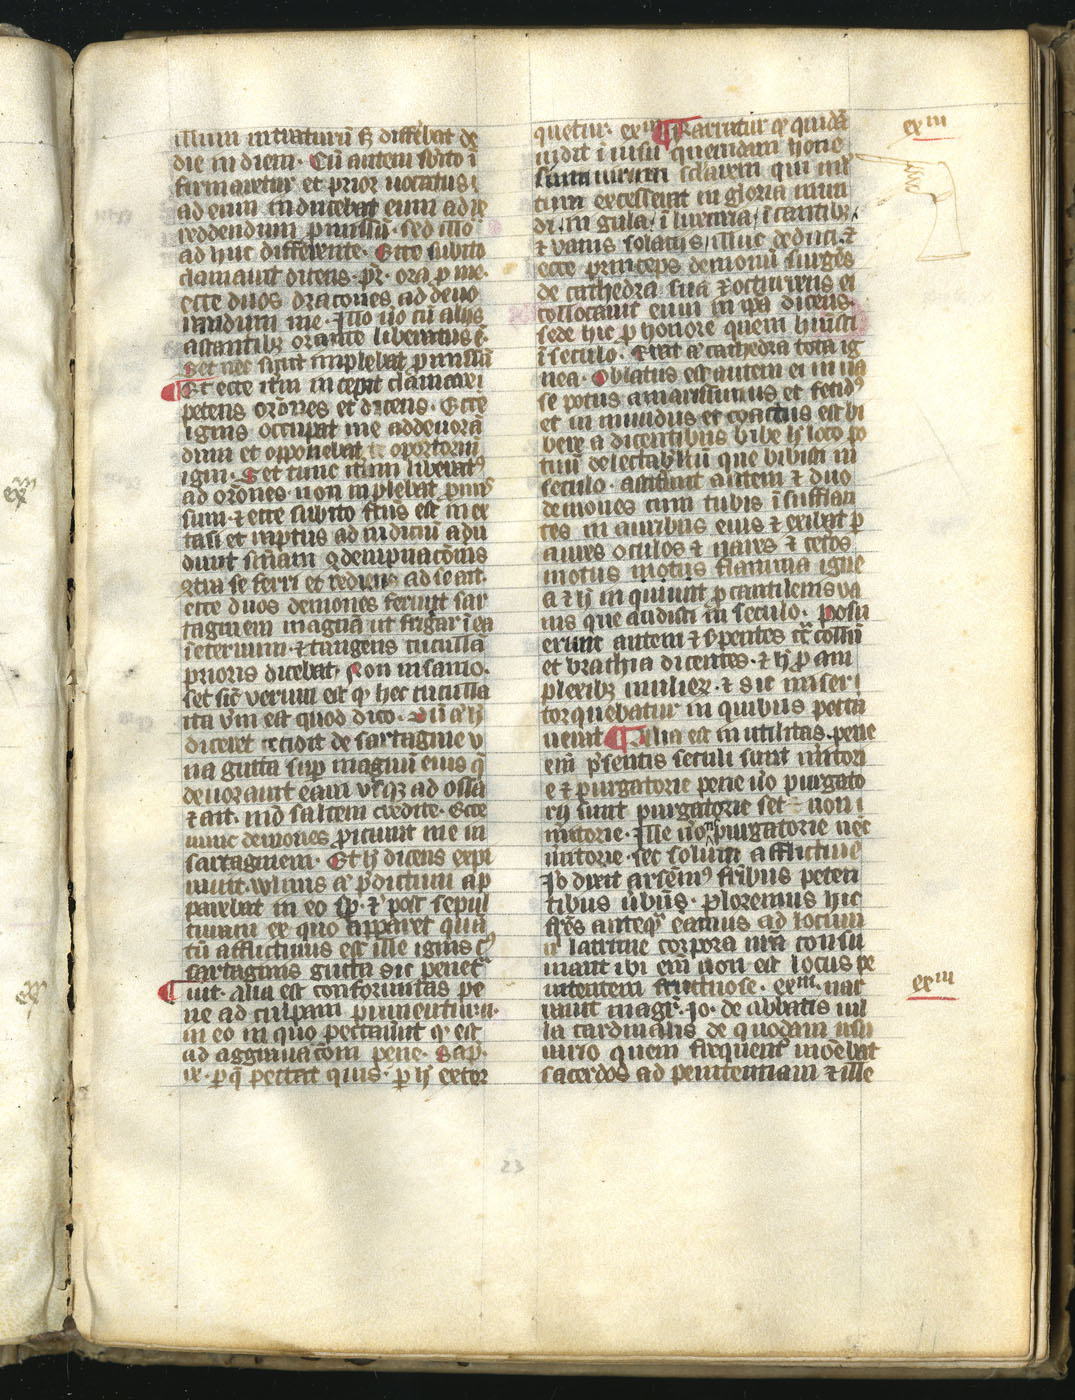 illum intraturū set differebat de
die in diem. Cū autem subito ī
firmaretur et prior uocatus
ad eum inducebat eum ad
reddendum pmissū. sed illo
ad huc differente. Ecce subito
clamauit dicens. pr̄. ora p me.
ecce duos dracones ad deuo
randum me. Illo uo cū alijs
astantibꝫ orante liberatus ē.
Set nec sicut implebat pmissū
Et ecce itm̄ incepit clamare
petens orōnes et dicens. Ecce
ignis occupat me ad deuora
dum et opponebat oportorm̄
igni. Set tunc itūm liberatꝰ
ad orōnes. non implebat pmis
sum. ⁊ ecce subito ftūs est in ex
tasi et raptus ad iudiciū apu
diuit snīam ꝯdempnacōnis
ꝯtra se ferri et rediens ad se ait.
ecce duos demones ferunt sar
taginem magnā ut frigar ī ea
ī eternum. ⁊ tangens cucullā
prioris dicebat. Non insanio.
set sic̄ verum est qꝫ hec cuculla
ita v̄m est quod dico. Dū aʳ hͦ
diceret cecidit de sartagine v
na gutta sup manū eius q̄
deuorauit eam vsqꝫ ad ossa
⁊ ait. m̊ saltem credite. Ecce
nunc demones proiciunt me in
sartaginem. Et hͦ dicens expi
rauit.
parebat in eo sp̄. ⁊ post sepul
turam ex quo apparet quā
tū afflictiuus est ille ignis cꝰ
sartaginis gutta sic penet̄
uit. Alia est conformitas pe
ne ad culpam puniuntur.
in eo in quo peccauit qʳ est
ad aggrauacōem pene. Sap.
ix. p q̄ peccat quis. p hͦ et tor
quetur. exᵐ Narratur qʳ quidā
uidit ī uisu quendam hone
stum uirum sclarem qui ml̄
tum excesserat in gloria mun
di. in gula. ī luxuria. ī cantibꝫ.
⁊ vanis solatijs. illuc deduci. ⁊
ecce princeps demonū surgēs
de cathedra sua ⁊ occurrens ei
collocauit eum in ip̄a dicens
sede hic p honore quem
ī seculo. Erat aʳ cathedra tota ig
nea. Oblatus est autem ei in ua
se potus amarissimus et fetidꝰ
et inmundus et coactus est bi
bere a dicentibus bibe hͦ loco po
tuū delectabiliū que bibisti in
seculo. astant autem ⁊ duo
demones cum tubis ī sufflan
tes in auribus eius ⁊ exibat p
aures oculos ⁊ nares ⁊ cetos
motus motus flamma igne
a ⁊ hͦ inquiunt p cantilenis va
nis que audisti in seculo. posu
erunt autem ⁊ s̄pentes cc̄ collū
et brachia dicentes. ⁊ hͦ p am
plexibꝫ mulieꝝ. ⁊ sic miser
torquebatur in quibus pecca
uerat. Alia est inutilitas. pene
em̄ p̄sentis seculi sunt m̄itori
e ⁊ purgatorie pene uo̊ purgato
rij sunt purgatorie set non
m̄itorie. Ille uo̊ purgatorie nec
m̄itorie. sec solum afflictiue
Iō dixit arsenīꝰ fr̄ibus peten
tibus v̄būs. ploremus hic
fr̄es anteqʳ eamus ad locum
u̅ lacrime corpora nr̄a consu
mant ibi em̄ non est locus pe
nitentem fructuose. exᵐ. nar
rauit magr̄. Jo. de abbatis uil
la cardinalis de quodam usu
rario quem frequenꝰ mōebat
sacerdos ad penitentiam ⁊ ille
exᵐ
exᵐ
23
exᵐ